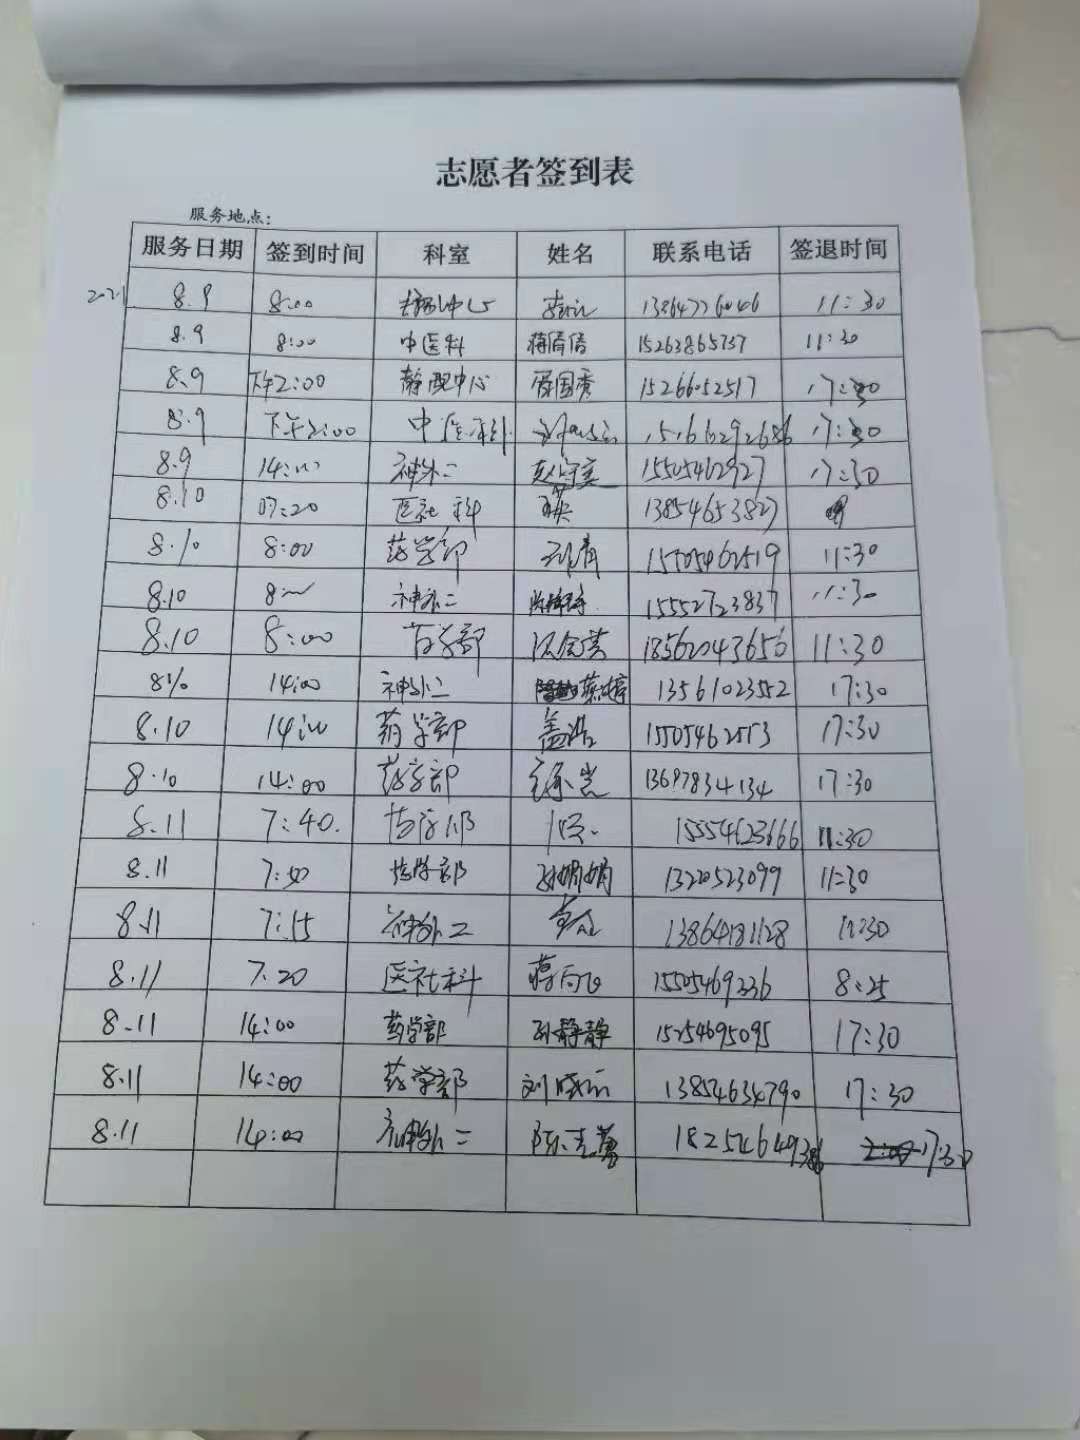 志愿者签到表
服务地点:
服务日期 签到时间 科室 姓名 联系电话 签退时间
2021 8.9 8:00 静配中心 13864776046 11:30
8.9 8:00 中医科 蒋倩倩 15263865757 11:30
8.9 下午2:00 静配中心 国秀 15266052517 17:30
8.9 下午2:00 中医科 15166292686 17:30
8.9 14:00 神外二 15505462927 17:30
8.10 07:20 医社科 13854653827
8.10 8:00 药学部 15505462519 11:30
8.10 8:00 神外二 15552723837 11:30
8.10 8:00 药学部 18562043656 11:30
8.10 14:00 神外二 13561023552 17:30
8.10 14:00 药学部 盖浩 15505462513 17:30
8.10 14:00 药学部 13697834134 17:30
8.11 7:40. 药学部 15554623666 11:30
8.11 7:50 药学部 孙娟娟 13220523099 11:30
8.11 7:15 神外二 13864181128 11:30
8.11 7.20 医社科 15505469336 8:25
8-11 14:00 药学部 孙静静 15254695095 17:30
8.11 14:00 药学部 刘 13854634790 17:30
8.11 14:00 神外二 陈 18254649386 17:30